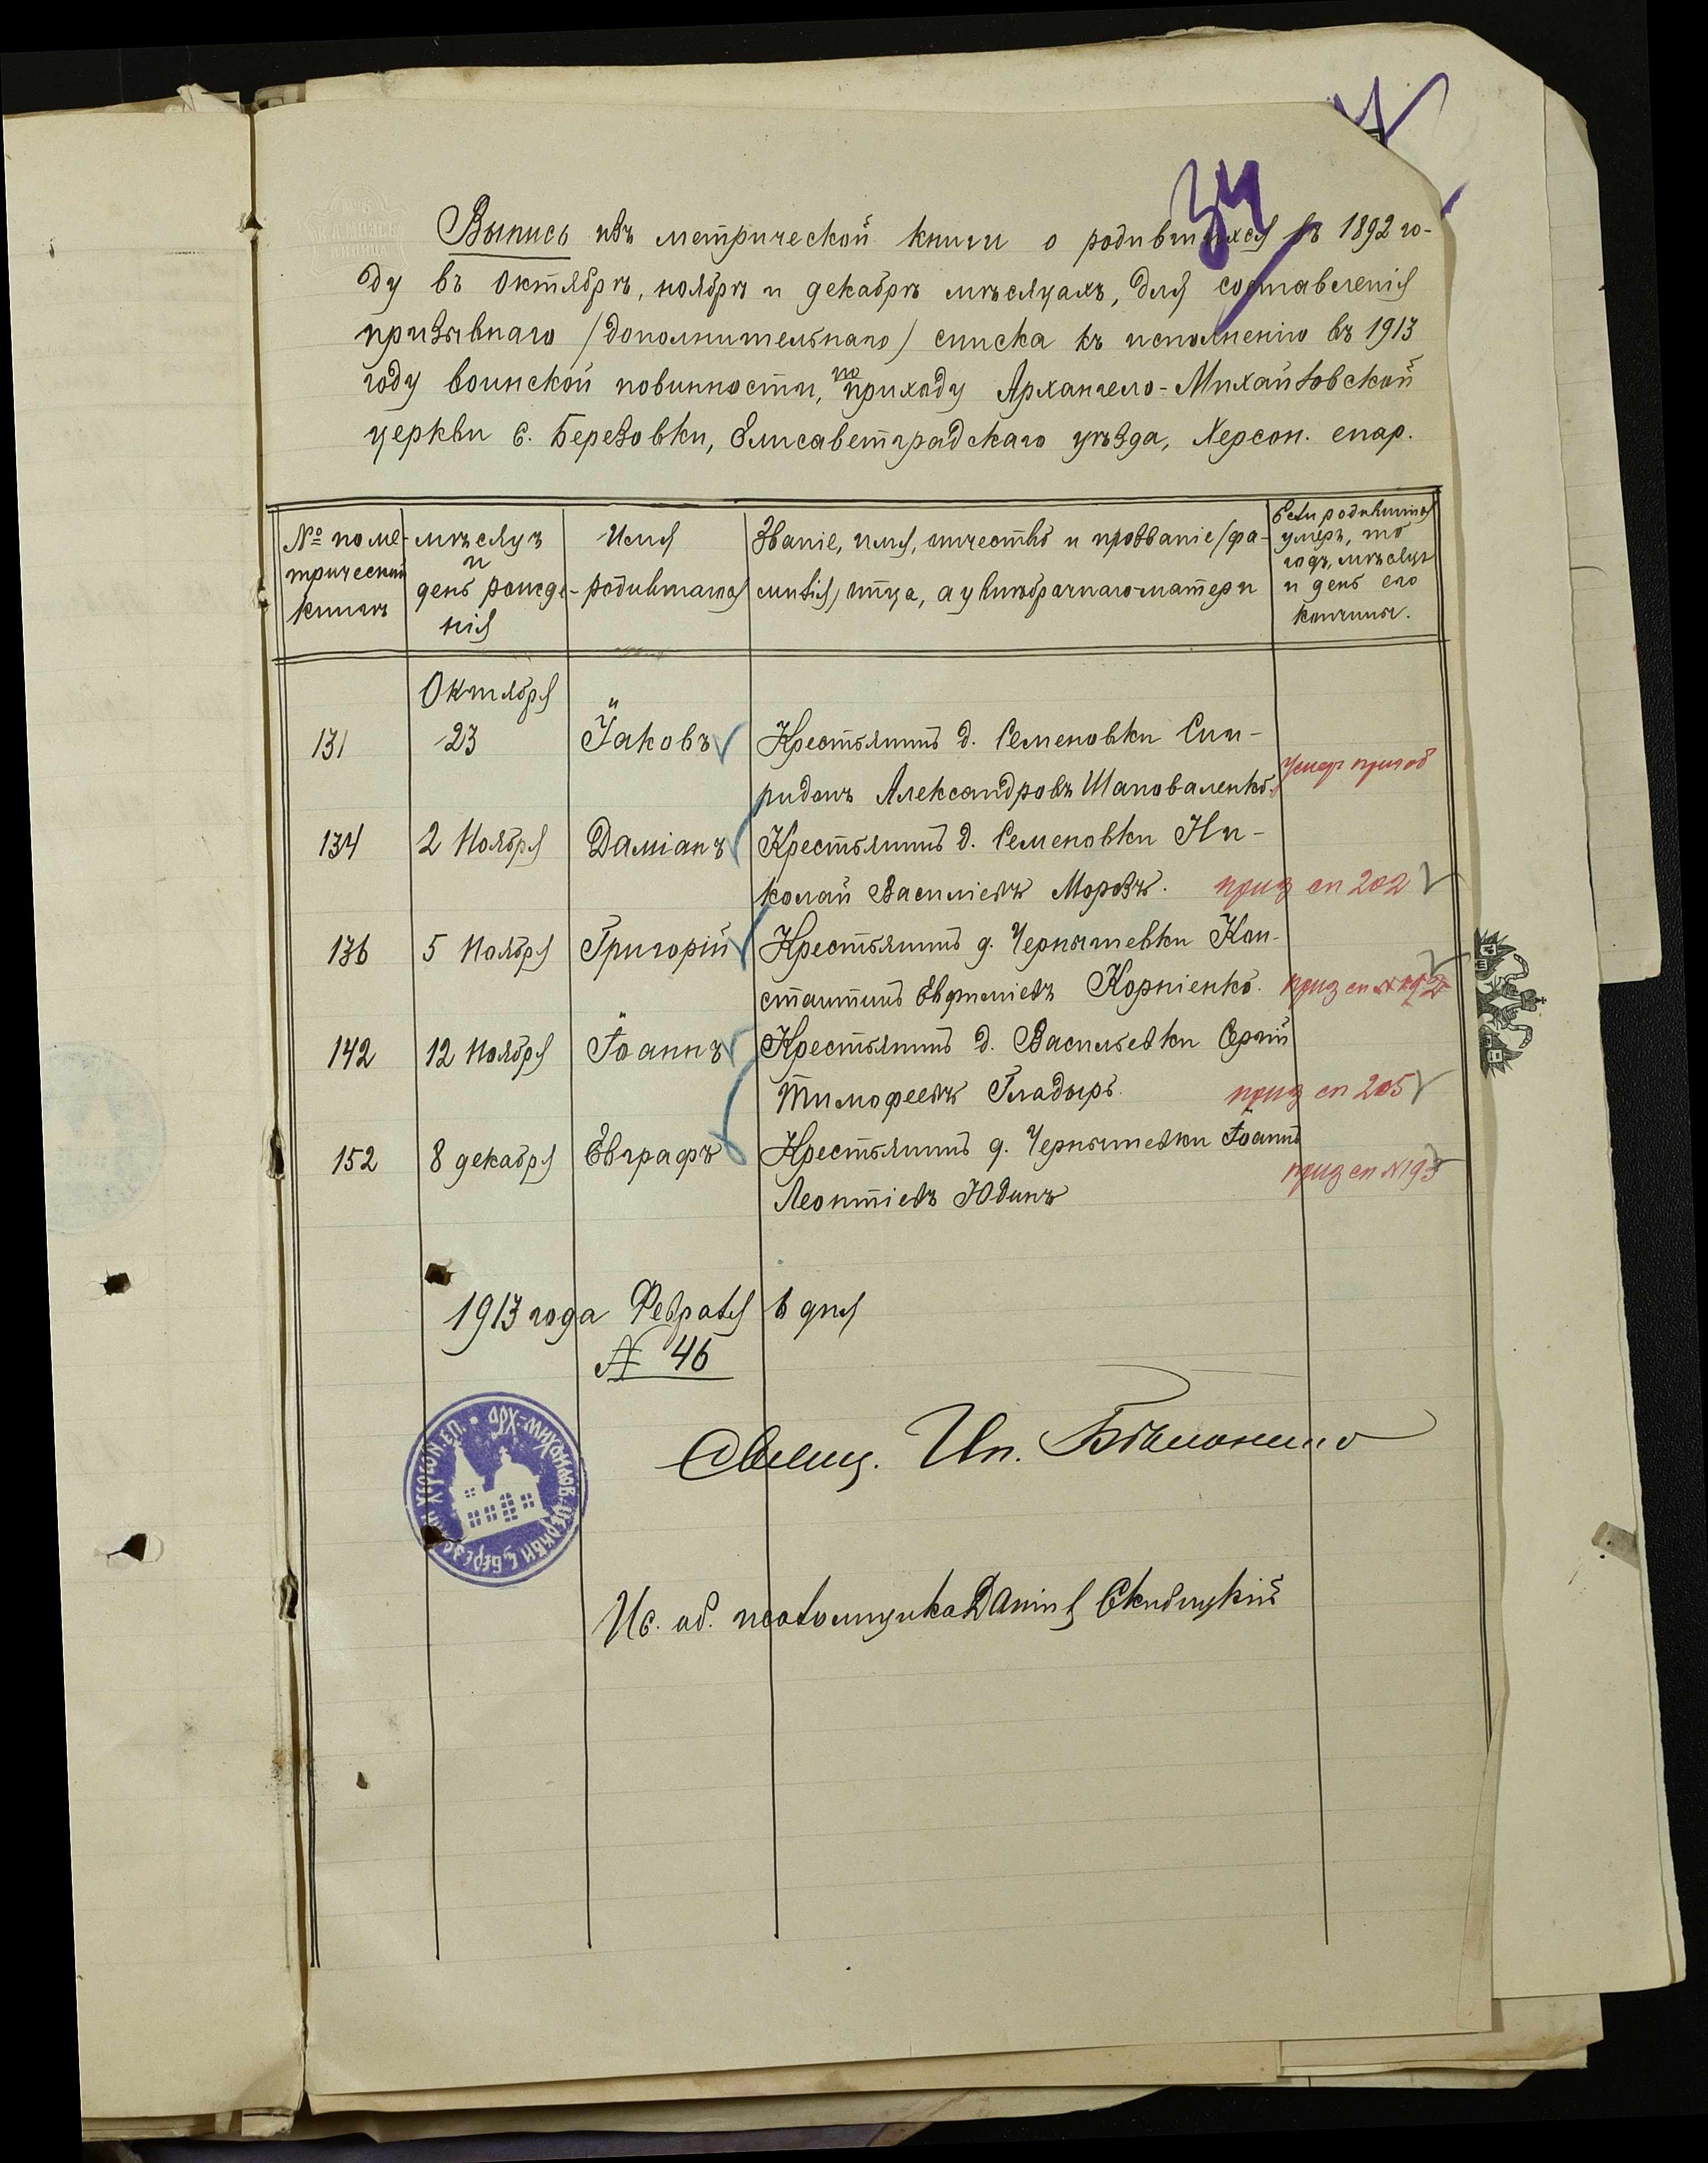 34
Выпись изъ метрической книги о родившихся въ 1892 го-
ду въ Октябрѣ, ноябрѣ и декабрѣ мѣсяцахъ, для составленія
призывнаго /дополнительнаго/ списка къ исполненію въ 1913
году воинской повинности, по приходу Архангело-Михайловской
церкви с. Березовки, Елисаветградскаго уѣзда, Херсон. епар.
№ по ме-трической книгѣ
мѣсяцъ и день рожде-нія
Имя родившагося
Званіе, имя, отчество и прозваніе /фа-
милія/ отца, а у внѣбрачнаго-матери
Если родившійся умеръ, то годъ, мѣсяцъ и день его кончины.
Октября
131 23 Іаковъ Крестьянинъ д. Семеновки Спи-
ридонъ Александровъ Шаповаленко. умер
134 2 Ноября Даміанъ Крестьянинъ д. Семеновки Ни-
колай Василіевъ Морозъ. приз сп 202
136 5 Ноября Григорій Крестьянинъ д. Чернышевки Кон-
стантинъ Евфиміевъ Корніенко. приз сп №
142 12 Ноября Іоаннъ Крестьянинъ д. Васильевки Сергій
Тимофеевъ Гладырь. приз сп 205
152 8 декабря Евграфъ Крестьянинъ д. Чернышевки Іоаннъ
Леонтіевъ Юдинъ приз сп №193
1913 года Февраля 6 дня
№ 46
АРХ.-МИХАЙЛОВ. ЦЕРКВИ С. БЕРЕЗОВ ХЕРСОН. ЕП.
Свящ. Ип.
Ис. об. псаломщика Даніилъ Скибицкій